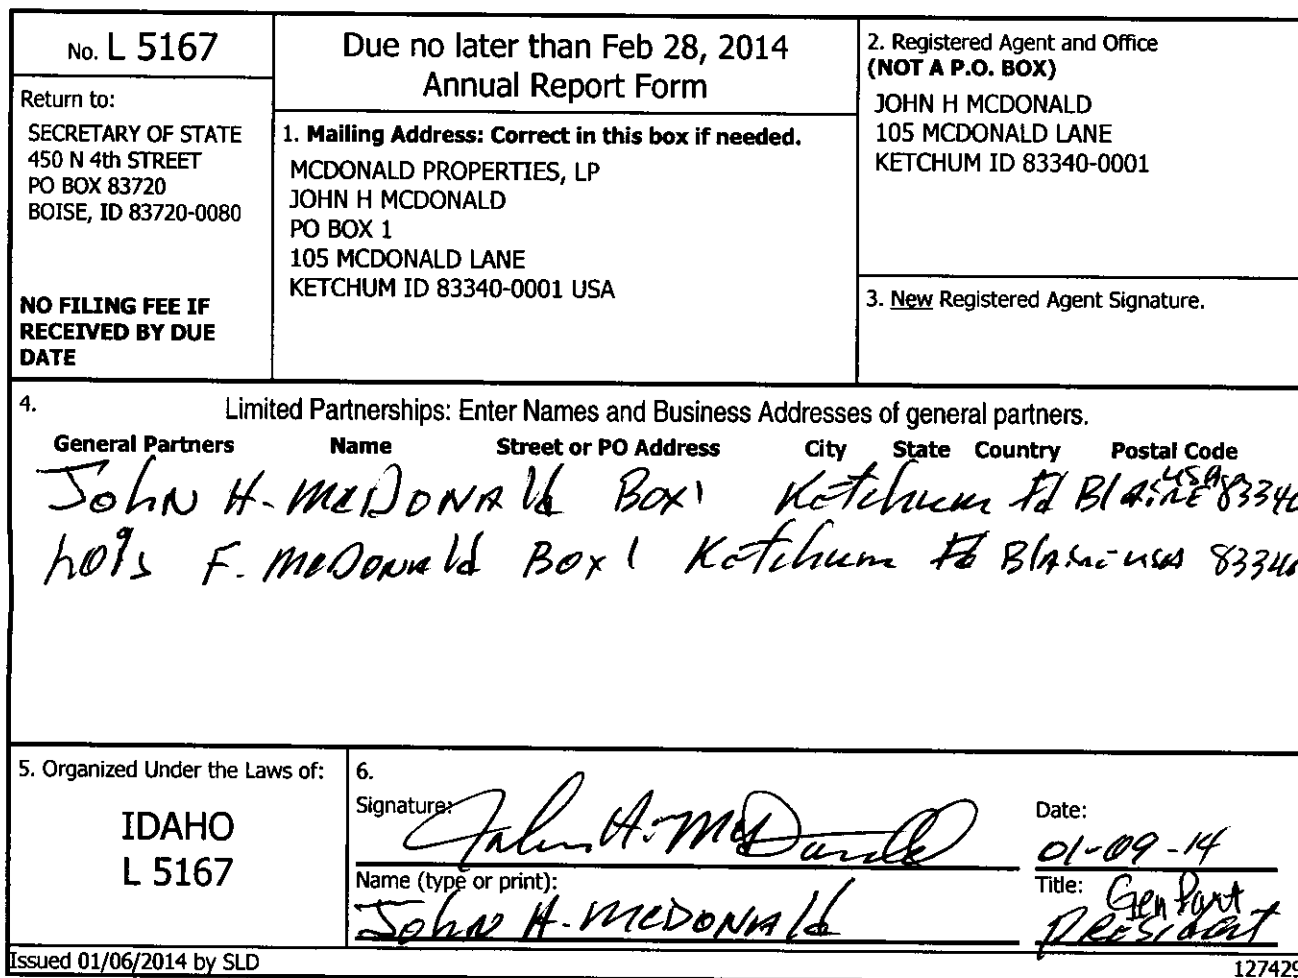 No. L 5167
Return to:
SECRETARY OF STATE
450 N 4th STREET
PO BOX 83720
BOISE, ID 83720-0080
NO FILING FEE IF
RECEIVED BY DUE
DATE
Due no later than Feb 28, 2014
Annual Report Form
1. Mailing Address: Correct in this box if needed.
MCDONALD PROPERTIES, LP
JOHN H MCDONALD
PO BOX 1
105 MCDONALD LANE
KETCHUM ID 83340-0001 USA
2. Registered Agent and Office
(NOT A P.O. BOX)
JOHN H MCDONALD
105 MCDONALD LANE
KETCHUM ID 83340-0001
3. New Registered Agent Signature.
4. Limited Partnerships: Enter Names and Business Addresses of general partners.
General Partners Name Street or PO Address City State Country Postal Code
John H. McDonald Box 1 Ketchum Id Blaine USA 83340
Lois F. McDonald Box 1 Ketchum Id Blaine USA 83340
5. Organized Under the Laws of:
IDAHO
L 5167
6.
Signature: John H. McDonald
Date: 01-09-14
Name (type or print): John H. McDonald
Title: Gen Part
President
Issued 01/06/2014 by SLD
127429